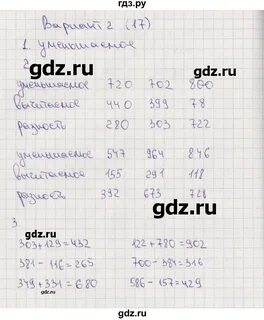 гдз.ру
Вариант 2 (17)
1. уменьшаемое
2
gdz.ru gdz.ru
уменьшаемое 720 702 800
вычитаемое 440 399 78
разность 280 303 722
gdz.ru gdz.ru
уменьшаемое 547 964 846
вычитаемое 155 291 118
разность 392 673 728
gdz.ru gdz.ru
3
303+129=432 122+780=902
381-116=265 700-384=316
349+331=680 586-157=429
gdz.ru gdz.ru